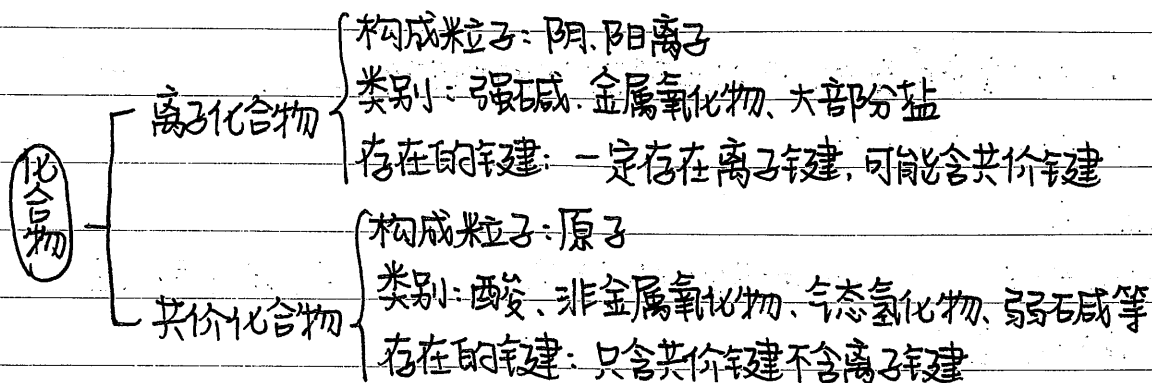 化合物
离子化合物
构成粒子:阴、阳离子
类别:强碱、金属氧化物、大部分盐
存在的键:一定存在离子键,可能含共价键
共价化合物
构成粒子:原子
类别:酸、非金属氧化物、气态氢化物、弱碱等
存在的键:只含共价键不含离子键